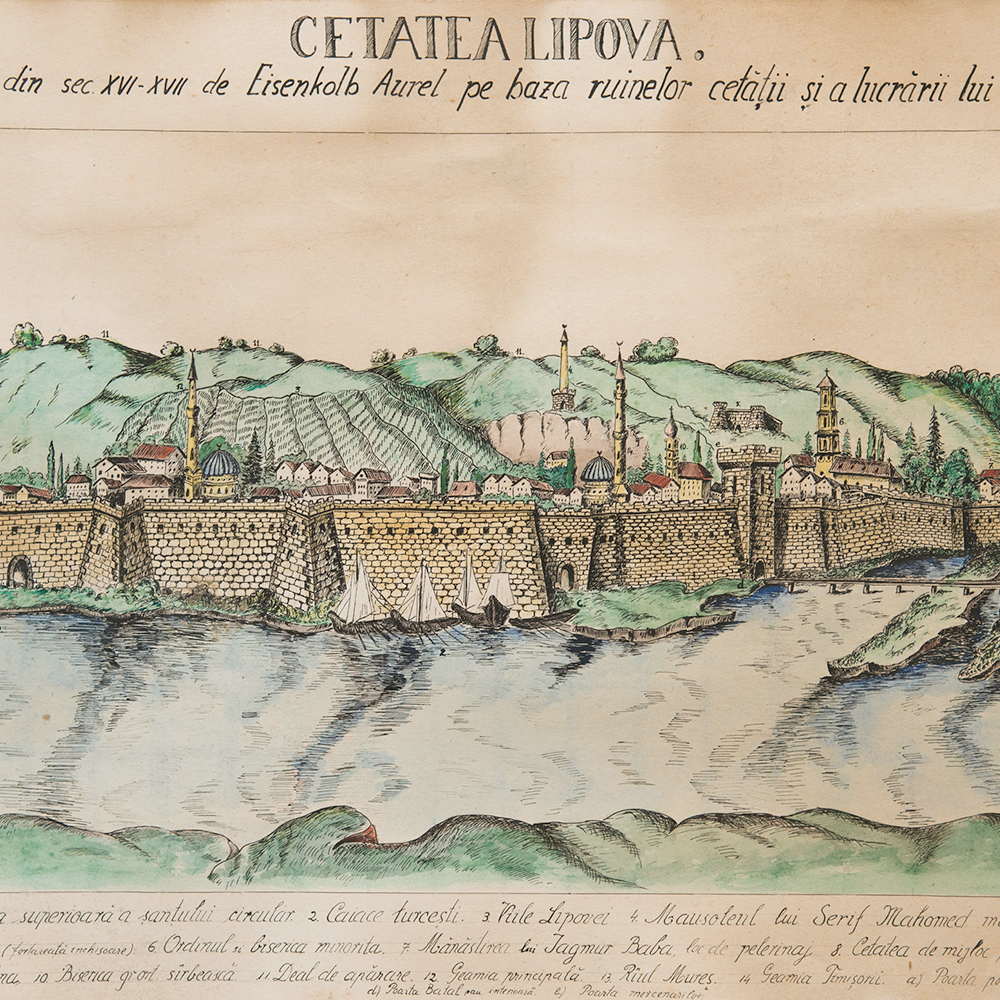 CETATEA LIPOVA.
din sec. XVI-XVII de Eisenkolb Aurel pe baza ruinelor cetății și a lucrării lui
superioară a șanțului circular. 2. Caiace turcești. 3 Viile Lipovei 4. Mausoleul lui Serif Mahomed
(fortăreață închisoare). 6. Ordinul si biserica minorita. 7 Mânăstirea lui Jagmur Baba, loc de pelerinaj 8. Cetatea de mijloc
10. Biserica gr. ort. sîrbească 11 Deal de apărare. 12 Geamia principală. 13. Rîul Mureș. 14 Geamia Timișorii. a) Poarta
d) Poarta Batal sau interioară. e) Poarta mercenarilor